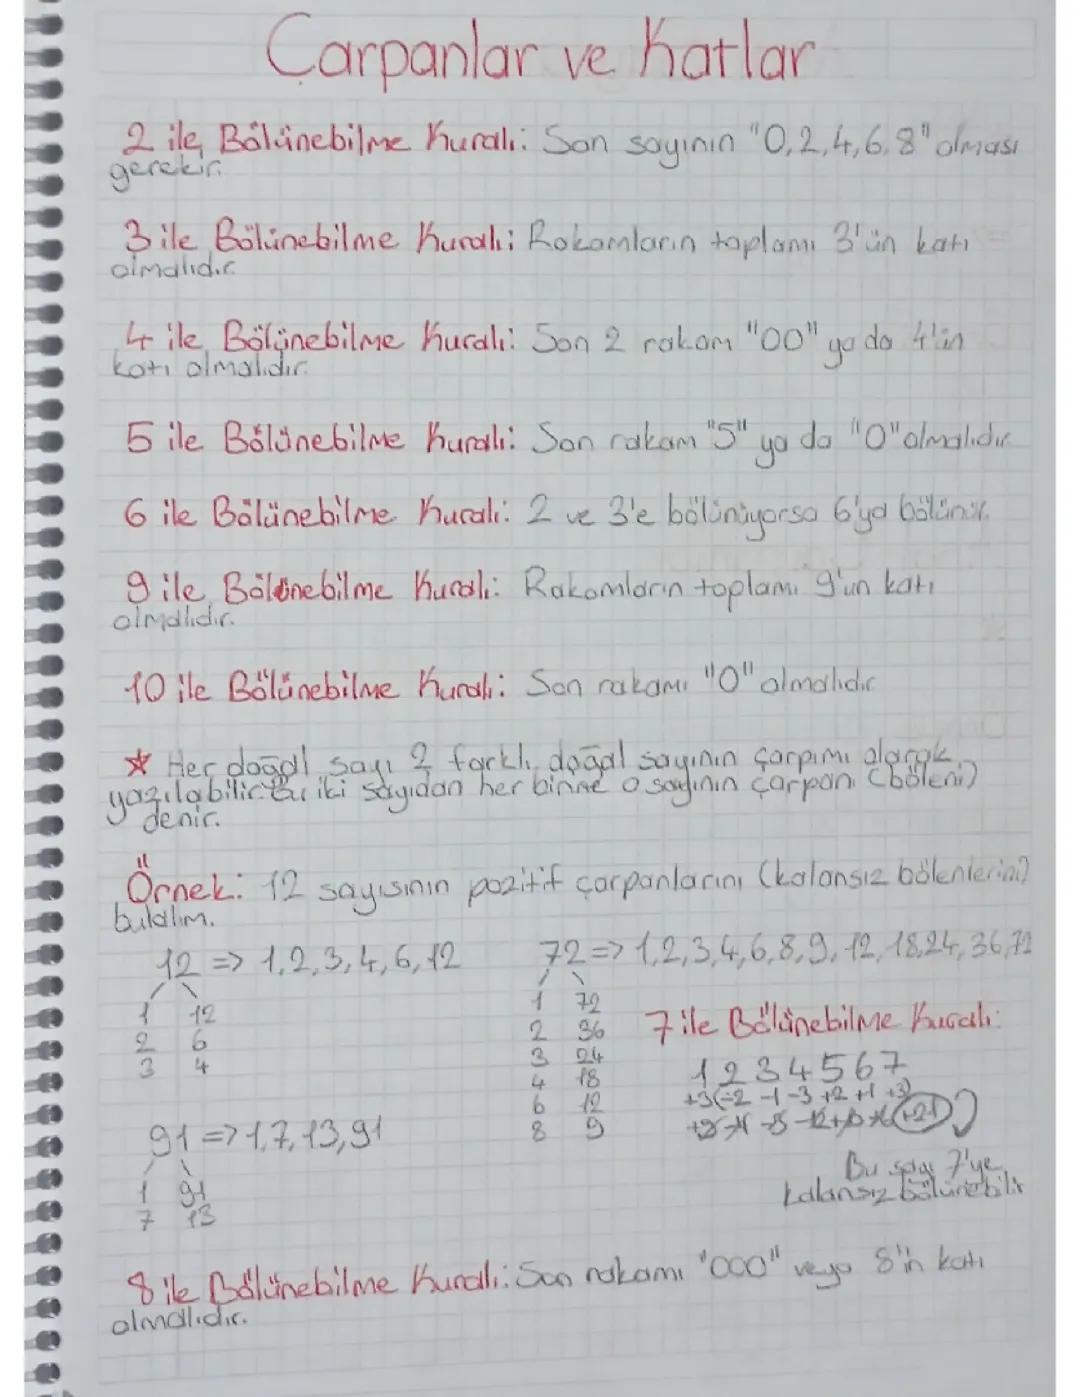 Çarpanlar ve Katlar
2 ile Bölünebilme Kuralı: Son sayının "0,2,4,6,8" olması
gerekir.
3 ile Bölünebilme Kuralı: Rakamların toplamı 3'ün katı
olmalıdır.
4 ile Bölünebilme Kuralı: Son 2 rakam "00" ya da 4'ün
katı olmalıdır.
5 ile Bölünebilme Kuralı: Son rakam "5" ya da "0" olmalıdır
6 ile Bölünebilme Kuralı: 2 ve 3'e bölünüyorsa 6'ya bölünür.
9 ile Bölünebilme Kuralı: Rakamların toplamı 9'un katı
olmalıdır.
10 ile Bölünebilme Kuralı: Son rakamı "0" olmalıdır
* Her doğal sayı 2 farklı doğal sayının çarpımı olarak
yazılabilir. Bu iki sayıdan her birine o sayının çarpanı (böleni)
denir.
Örnek: 12 sayısının pozitif çarpanlarını (kalansız bölenlerini)
bulalım.
12 => 1,2,3,4,6,12
1 12
2 6
3 4
72 => 1,2,3,4,6,8,9,12,18,24,36,72
1 72
2 36
3 24
4 18
6 12
8 9
91 => 1,7,13,91
1 91
7 13
7 ile Bölünebilme Kuralı:
1 2 3 4 5 6 7
+3(-2 -1 -3 +2 +1 +3)
+21
Bu sayı 7'ye
kalansız bölünebilir
8 ile Bölünebilme Kuralı: Son rakamı "000" veya 8'in katı
olmalıdır.